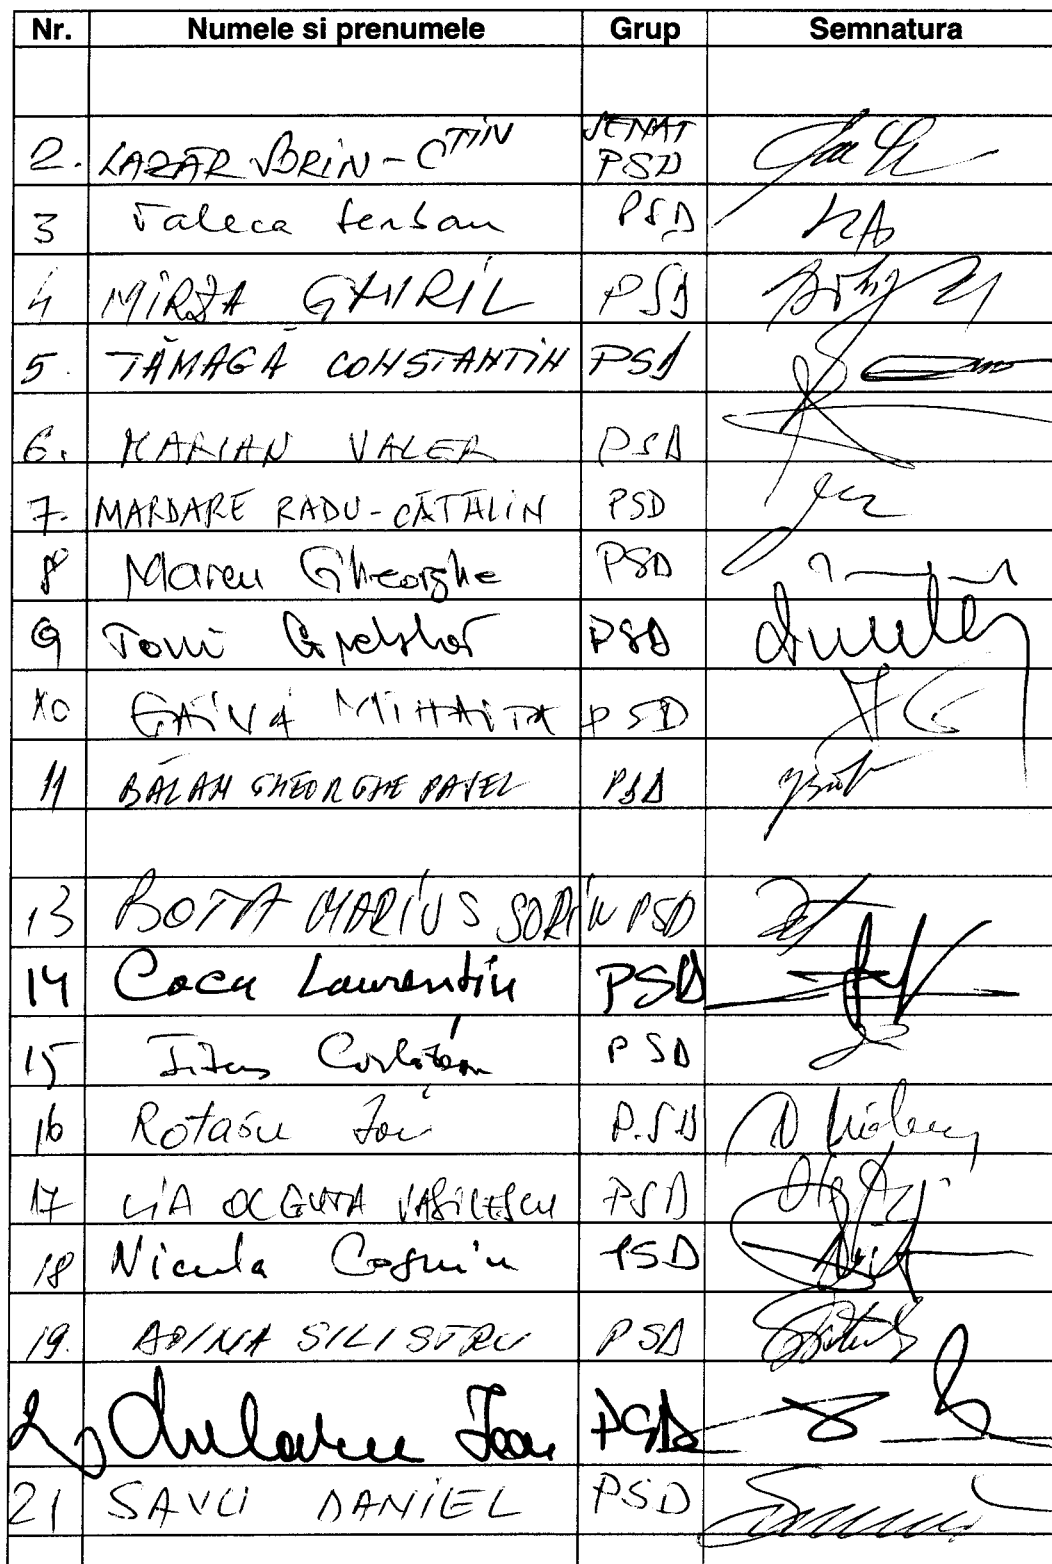 Nr. Numele si prenumele Grup Semnatura
2. LAZĂR SORIN-CTIN SENAT PSD
3 Valeca Serban PSD
4 MIRZA GAVRIL PSD
5. TĂMAGĂ CONSTANTIN PSD
6. MARIAN VALER PSD
7. MARDARE RADU-CĂTĂLIN PSD
8 Marcu Gheorghe PSD
9 Toni PSD
10 GAINĂ MIHAITA PSD
11 BĂLAN GHEORGHE PAVEL PSD
13 BOTA MARIUS SORIN PSD
14 Coca Laurentiu PSD
15 Titus Corlățean PSD
16 Rotaru Ion P.S.D
17 LIA OLGUTA VASILESCU PSD
18 Nicula Cosmin PSD
19. ADINA SILISTRU PSD
20 Ioan PSD
21 SAVU DANIEL PSD